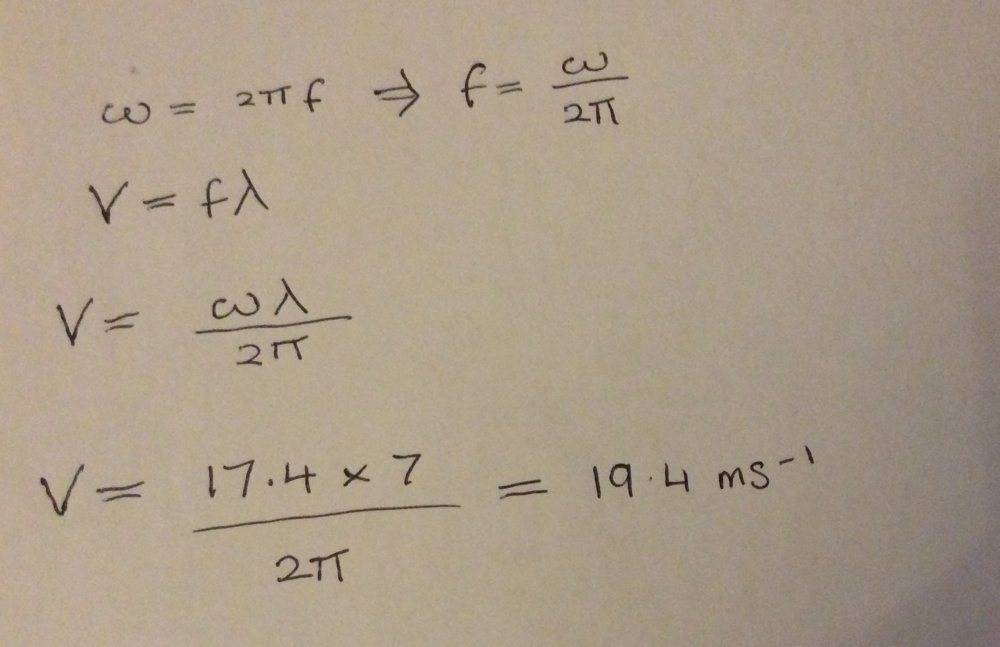 ω = 2πf ⇒ f = ω/2π
V = fλ
V = ωλ/2π
V = 17.4 × 7/2π = 19.4 ms⁻¹